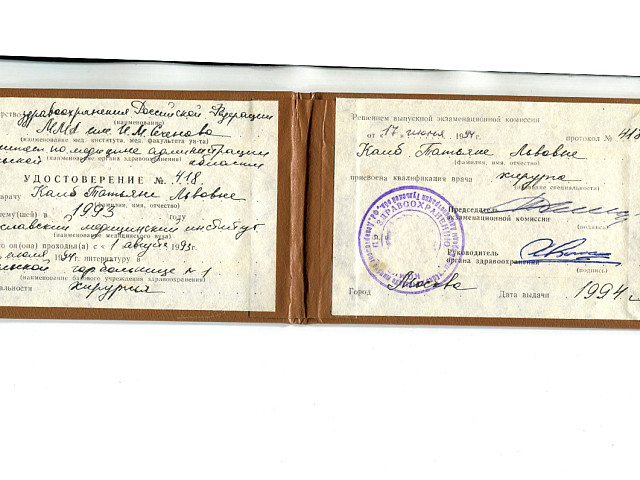 здравоохранения Российской Федерации
(наименование)
ММА им. И.М. Сеченова
(наименование мед. института, мед. факультета ун-та)
по медицине администрации
области
(наименование органа здравоохранения)
УДОСТОВЕРЕНИЕ №. 418
врачу Калб Татьяне Львовне
(фамилия, имя, отчество)
ему(шей) в 1993 году
славский медицинский институт
то он(она) проходил(а) с « 1 августа 1993г.
июля 1994г. интернатуру в
горбольнице № 1
(наименование базового учреждения здравоохранения)
альности хирургия
Решением выпускной экзаменационной комиссии
от 17 июня 1994г протокол № 418
Калб Татьяне Львовне
(фамилия, имя, отчество)
присвоена квалификация врача хирурга
(название специальности)
Председатель
экзаменационной комиссии
(подпись)
Руководитель
органа здравоохранения
(подпись)
ЗДРАВООХРАНЕНИЮ
Город Москва Дата выдачи 1994